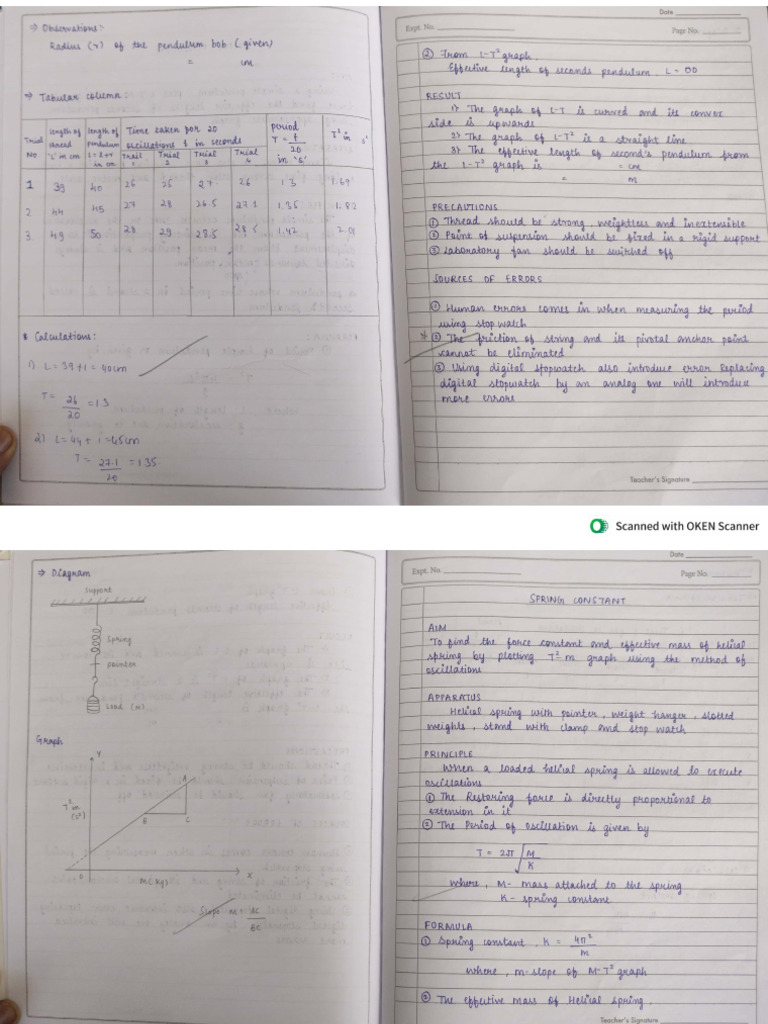 ⇒ Observations:-
Radius (r) of the pendulum bob (given)
= cm
⇒ Tabular column:
Trial No. | length of thread 'l' in cm | length of pendulum L = l+r in cm | Time taken for 20 oscillations t in seconds | period T = t/20 in 's' | T² in s²
Trail 1 | Trial 2 | Trial 3 | Trial 4
1 39 40 26 25 27 26 1.3 1.69
2. 44 45 27 28 26.5 27.1 1.35 1.82
3. 49 50 28 29 28.5 28.5 1.42 2.01
Calculations:
1) L = 39+1 = 40cm
T = 26/20 = 1.3
2) L = 44 + 1 = 45cm
T = 27.1/20 = 1.35
Date
Expt. No.
Page No.
② From L-T² graph,
Effective length of seconds pendulum, L = OD
RESULT
1) The graph of L-T is curved and its convex
side is upwards
2) The graph of L-T² is a straight line
3) The effective length of second's pendulum from
the L-T² graph is = cm
= m
PRECAUTIONS
① Thread should be strong, weightless and inextensible
② Point of suspension should be fixed in a rigid support
③ Laboratory fan should be switched off
SOURCES OF ERRORS
① Human errors comes in when measuring the period
using stop watch
② The friction of string and its pivotal anchor point
cannot be eliminated
③ Using digital stopwatch also introduce error Replacing
digital stopwatch by an analog one will introduce
more errors
Teacher's Signature
Scanned with OKEN Scanner
⇒ Diagram
Support
Spring
pointer
Load (m)
Graph
Y
T² m
(s²)
A
B
C
O
m(kg)
X
Slope m = AC/BC
Date
Expt. No.
Page No.
SPRING CONSTANT
AIM
To find the force constant and effective mass of helical
spring by plotting T²-m graph using the method of
oscillations
APPARATUS
Helical spring with pointer, weight hanger, slotted
weights, stand with clamp and stop watch
PRINCIPLE
When a loaded helical spring is allowed to execute
oscillations
① The Restoring force is directly proportional to
extension in it
② The Period of oscillation is given by
T = 2π √(M/K)
where, M- mass attached to the spring
K- spring constant
FORMULA
① Spring constant, K = 4π²/m
where, m-slope of M-T² graph
② The effective mass of Helical spring,
Teacher's Signature